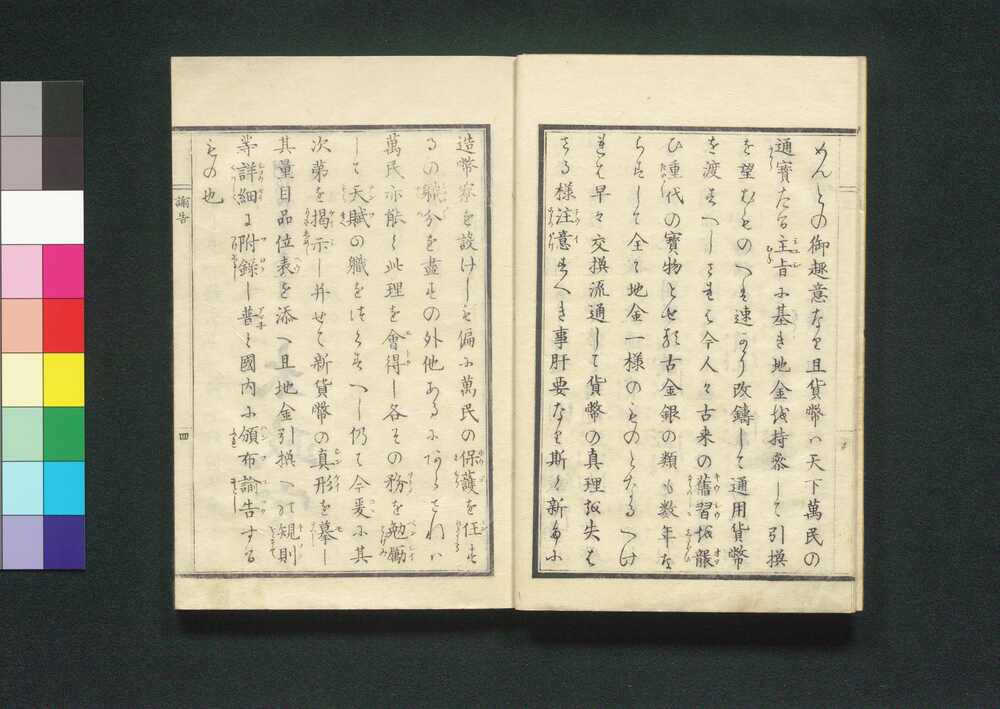 めんとの御趣意なり且貨幣ハ天下萬民の
通寳たる主旨に基き地金を持参して引換
を望むものへは速かに改鋳して通用貨幣
を渡すへし されは今人々古来の舊習を脱
ひ重代の寳物とせる古金銀の類も数年な
らすして全く地金一様のものとなるへけ
れは早々交換流通して貨幣の真理を失は
さる様注意すへき事肝要なり斯く新に
造幣寮を設けしも偏に萬民の保護を任す
るの職分を盡すの外他あるにあらされハ
萬民亦能く此理を會得し各その務を勉勵
して天賦の職をつくすへし仍て今爰に其
次第を掲示し并せて新貨幣の真形を摹し
其量目品位表を添へ且地金引換へ規則
等詳細に附録し普く國内に頒布諭告する
もの也
諭告
四